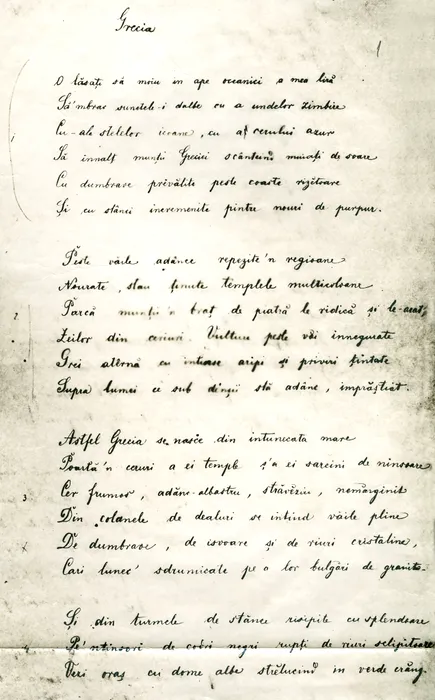 Grecia
1
O lăsați să moiu in ape oceanici a mea liră
Să'mbrac sunetele-i dalbe cu a undelor zimbire
Cu-ale stelelor icoane, cu a cerului azur
Să innalț munții Greciei scânteind muiați de soare
Cu dumbrave prăvălite peste coaste rizătoare
Și cu stânci incremenite pintre nouri de purpur.
Peste văile adânce repezite'n
Nourate, stau ținute templele multicoloane
2.
Parcă munții'n braț de piatră le ridică și le-arat,
Zeilor din ceriuri. Vulturi peste văi innegurate
Grei atârnă cu intinse aripi și priviri țintate
Supra lumei ce sub dînșii stă adânc, imprăștiat.
Astfel Grecia se nasce din intunecata mare
Poartă'n ceruri a ei temple ș'a ei sarcini de ninsoare
3
Cer frumos, adânc-albastru, străveziu, nemărginit
Din colanele de dealuri se intind văile pline
De dumbrave, de isvoare și de riuri cristaline,
Cari lunec' sdrumicate pe a lor bulgări de granit.
Și din turmele de stânce risipite cu splendoare
4
Pe'ntinsori de codri negri rupți de riuri sclipitoare
Vezi oraș cu dome albe strălucind in verde crâng.